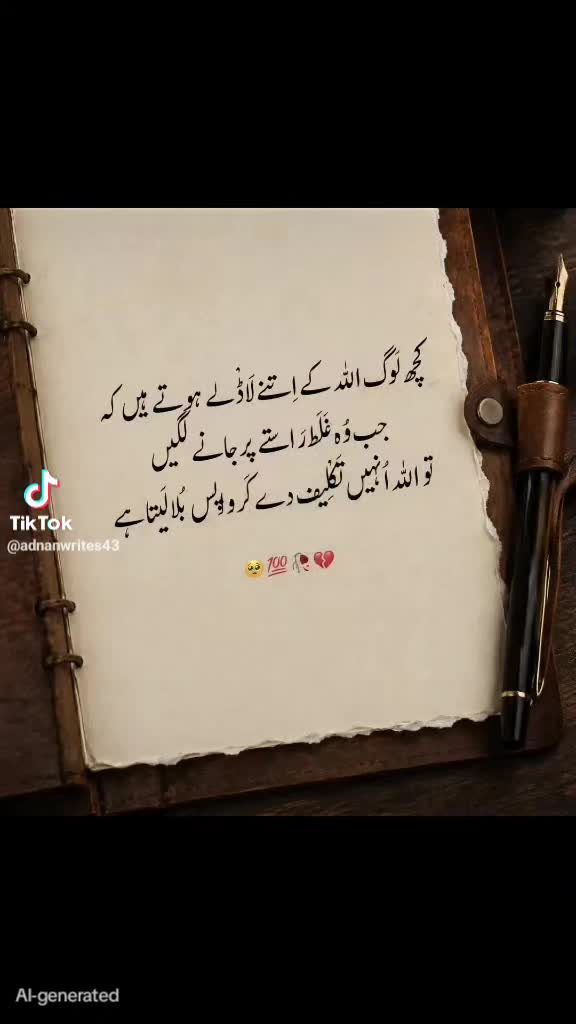 کچھ لَوگ اللہ کے اِتنے لَاڈلے ہوتے ہیں کہ
جب وُہ غَلَط رَاستے پر جانے لگیں
تو اللہ اُنہیں تَکلِیف دے کَر واپس بُلا لَیتا ہے
🥺💯🥀💔
TikTok
@adnanwrites43
AI-generated